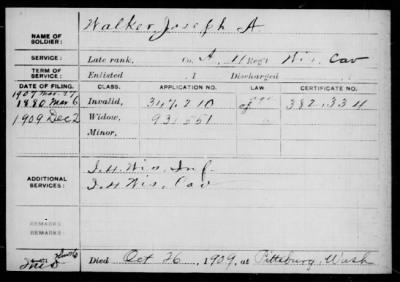 NAME OF SOLDIER: Walker, Joseph A
SERVICE: Late rank, Co. A, 4 Reg't Wis. Cav
TERM OF SERVICE: Enlisted , 1 Discharged , 1
DATE OF FILING. CLASS. APPLICATION NO. LAW CERTIFICATE NO.
1880 Mar 6 Invalid, 347.210 382.334
1909 Dec 2 Widow, 931551
Minor,
ADDITIONAL SERVICES: I. 4. Wis. Inf.
I. 4. Wis. Cav
REMARKS
REMARKS
Died Oct 26, 1909, at Pittsburg, Wash